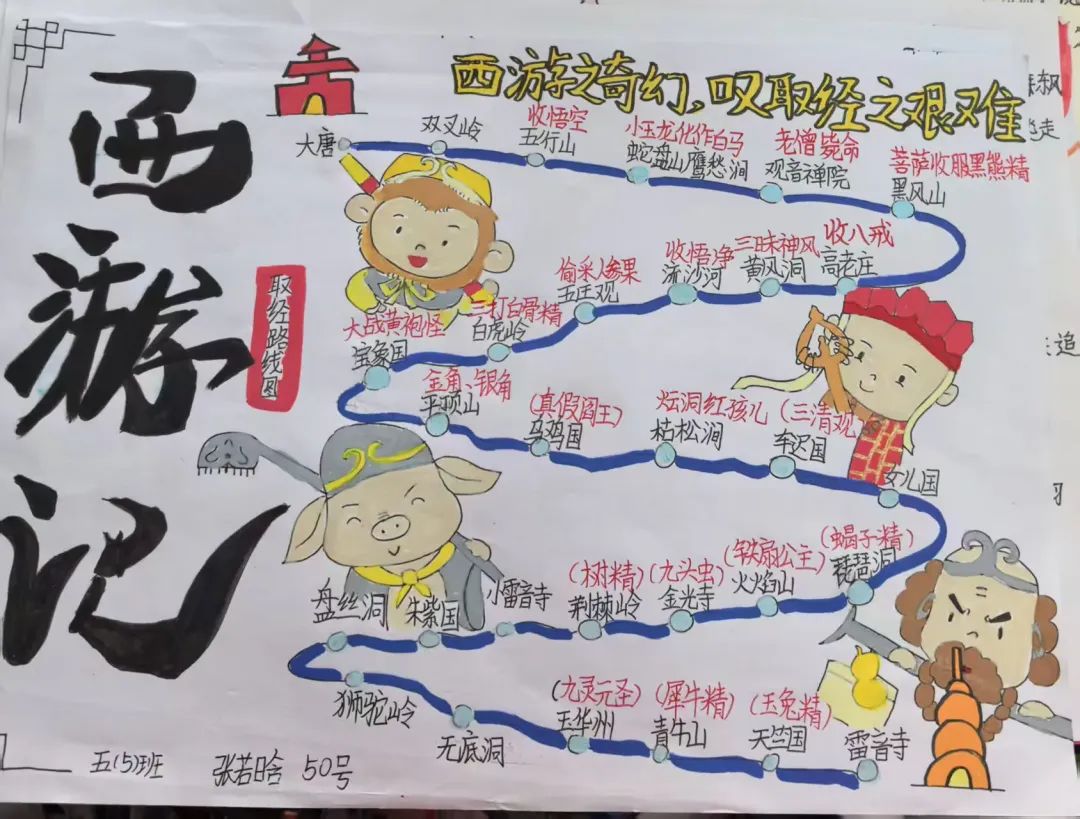 西游记
取经路线图
西游之奇幻、叹取经之艰难
大唐
双叉岭
收悟空
五行山
小玉龙化作白马
蛇盘山鹰愁涧
老僧毙命
观音禅院
菩萨收服黑熊精
黑风山
收八戒
高老庄
三昧神风
黄风洞
收悟净
流沙河
偷采人参果
五庄观
三打白骨精
白虎岭
大战黄袍怪
宝象国
金角、银角
平顶山
(真假阎王)
乌鸡国
枯松涧
(三清观)
车迟国
女儿国
(蝎子精)
琵琶洞
(铁扇公主)
火焰山
(九头虫)
金光寺
(树精)
荆棘岭
小雷音寺
朱紫国
盘丝洞
狮驼岭
无底洞
(九灵元圣)
玉华州
(犀牛精)
青牛山
(玉兔精)
天竺国
雷音寺
五(5)班
50号